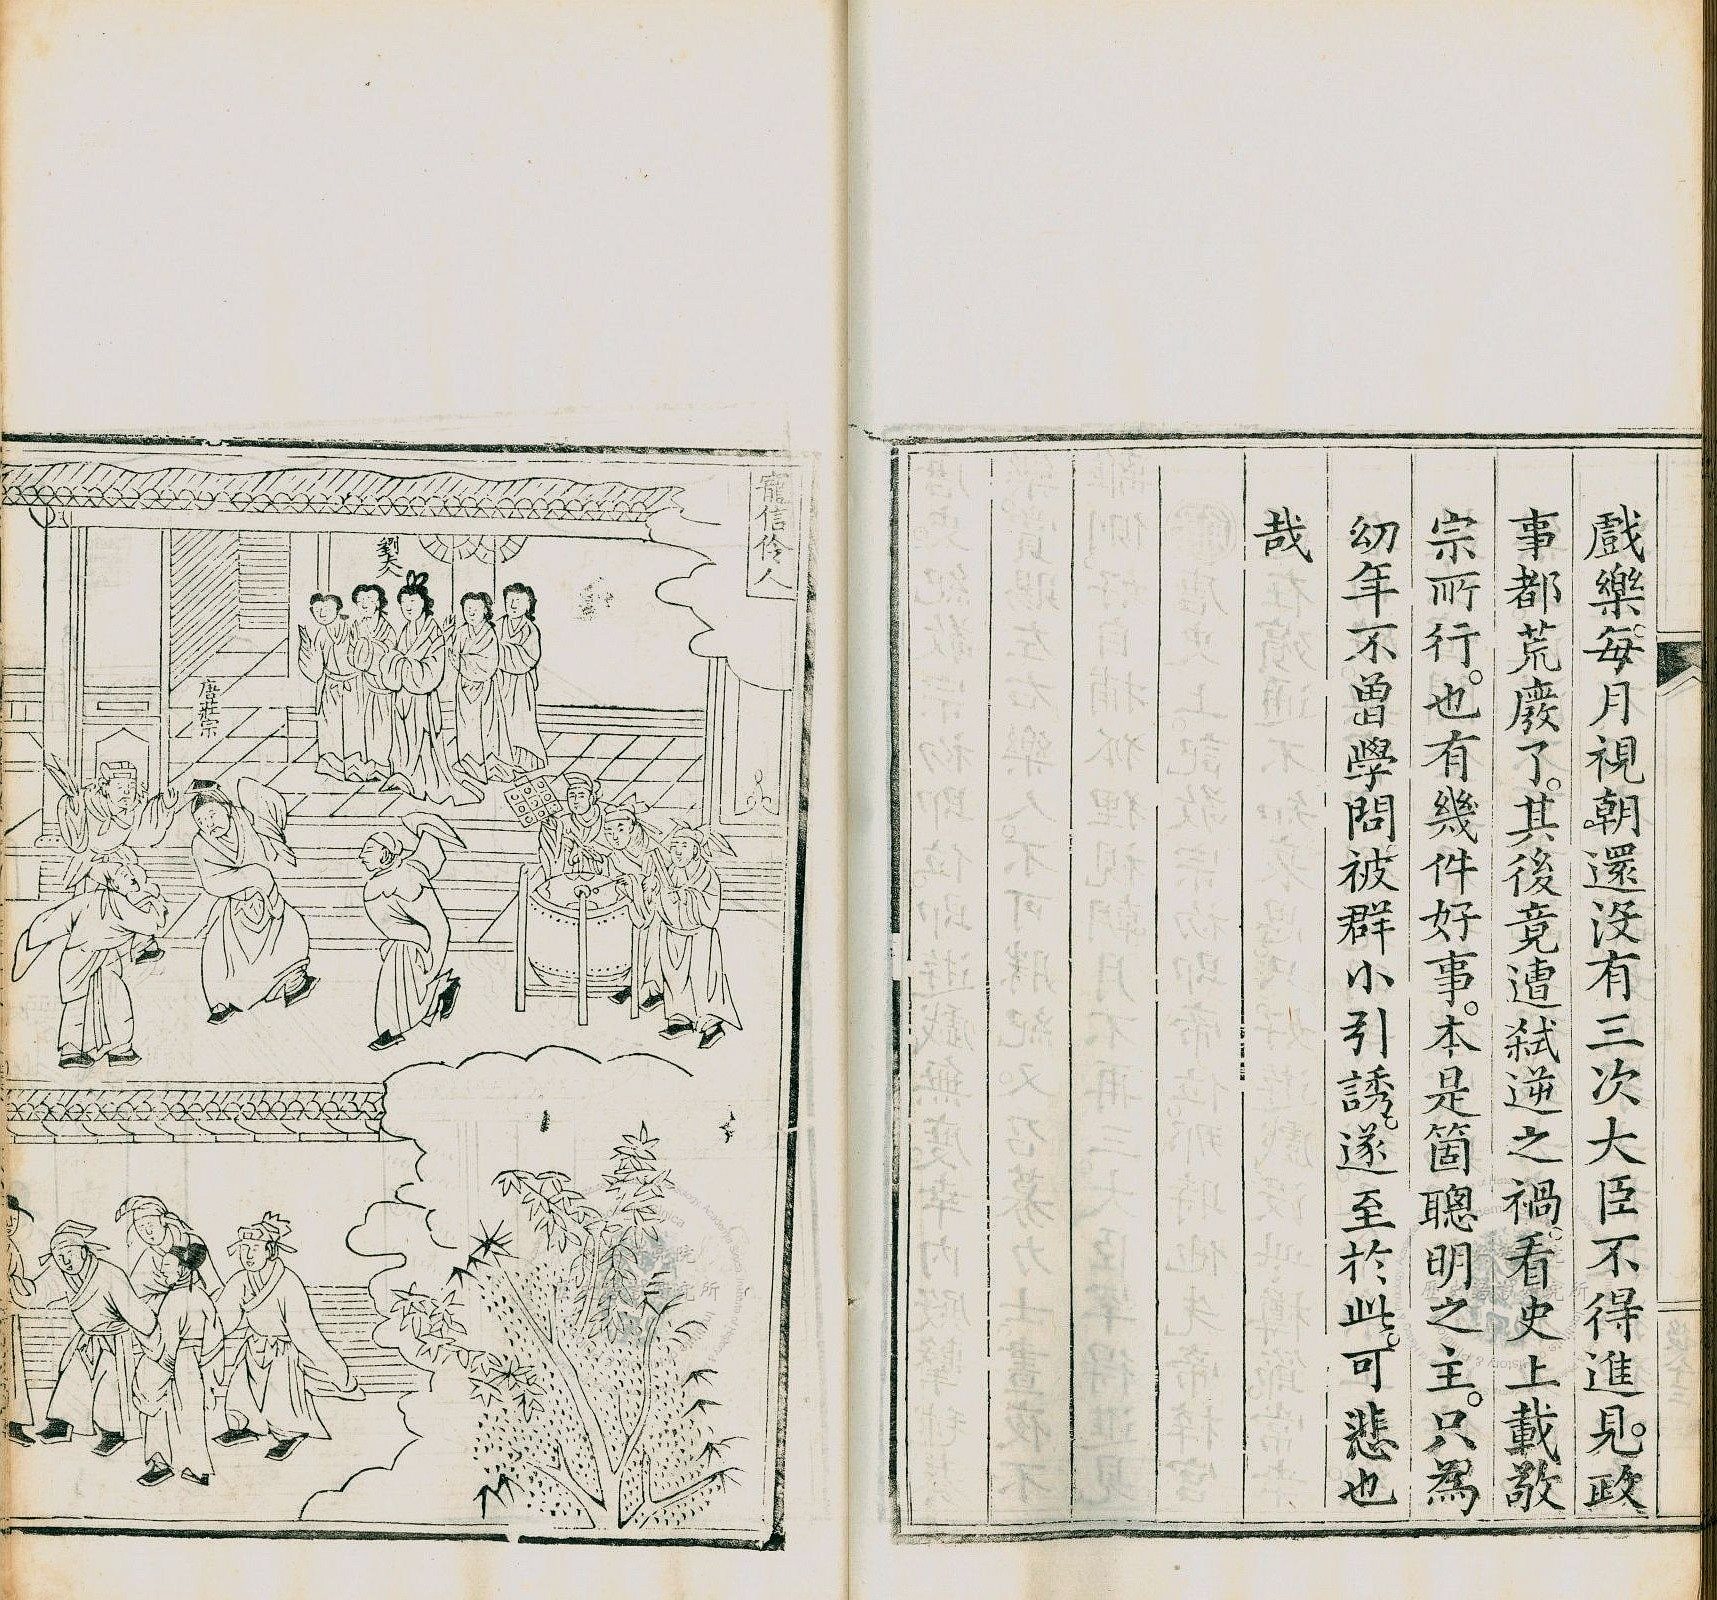 戲樂。每月視朝。還沒有三次大臣不得進見。政
事都荒廢了。其後竟遭弒逆之禍。看史上載敬
宗所行。也有幾件好事。本是箇聰明之主。只為
幼年不曾學問被群小引誘。遂至於此。可悲也
哉
寵信伶人
劉夫人
唐莊宗